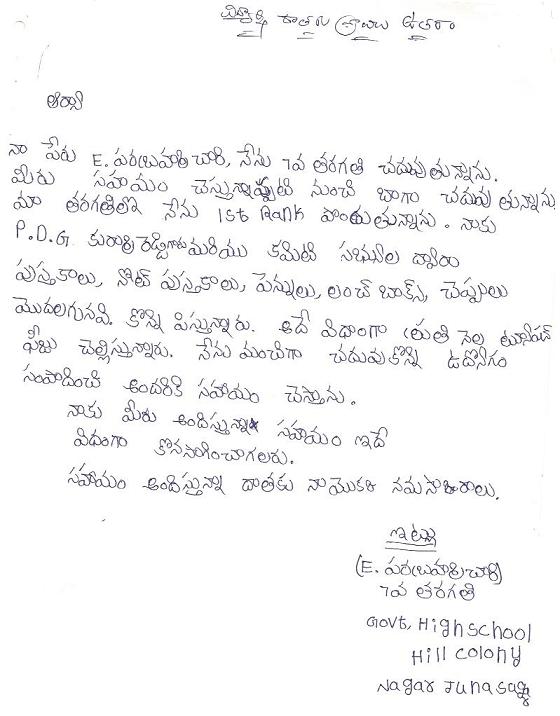 ఆర్యా
నా పేరు E. పరబ్రహ్మచారి, నేను 7వ తరగతి చదువుతున్నాను.
మీరు సహయం చేస్తున్నప్పటి నుంచి బాగా చదువు తున్నాను
మా తరగతిలో నేను 1st Rank పొందుతున్నాను. నాకు
P.D.G. కుమార్ రెడ్డిగారు మరియు కమిటి సభ్యుల ద్వారా
పుస్తకాలు, నోట్ పుస్తకాలు, పెన్నులు, లంచ్ బాక్స్, చెప్పులు
మొదలగునవి. కొన్ని పిస్తున్నారు. అదే విధంగా ప్రతి నెల టూషన్
ఫీజు చెల్లిస్తున్నారు. నేను మంచిగా చదువుకొన్ని ఉదోనిగం
సంపాదించి అందరికి సహాయం చేస్తాను.
నాకు మీరు అందిస్తున్నా సహయం ఇదే
విధంగా కొనసాగించాగలరు.
సహయం అందిస్తున్నా దాతకు నా మొకరి నమసాకారాలు.
ఇట్లు
(E. పరబ్రహ్మచారి)
7వ తరగతి
Govt, High school
Hill colony
Nagar Juna